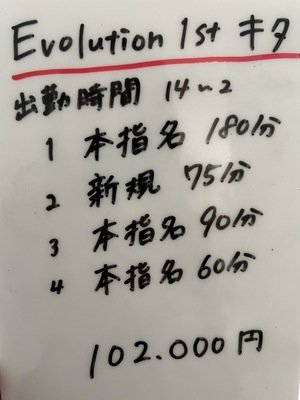 Evolution 1st キタ
出勤時間 14〜2
1 本指名 180分
2 新規 75分
3 本指名 90分
4 本指名 60分
102.000円